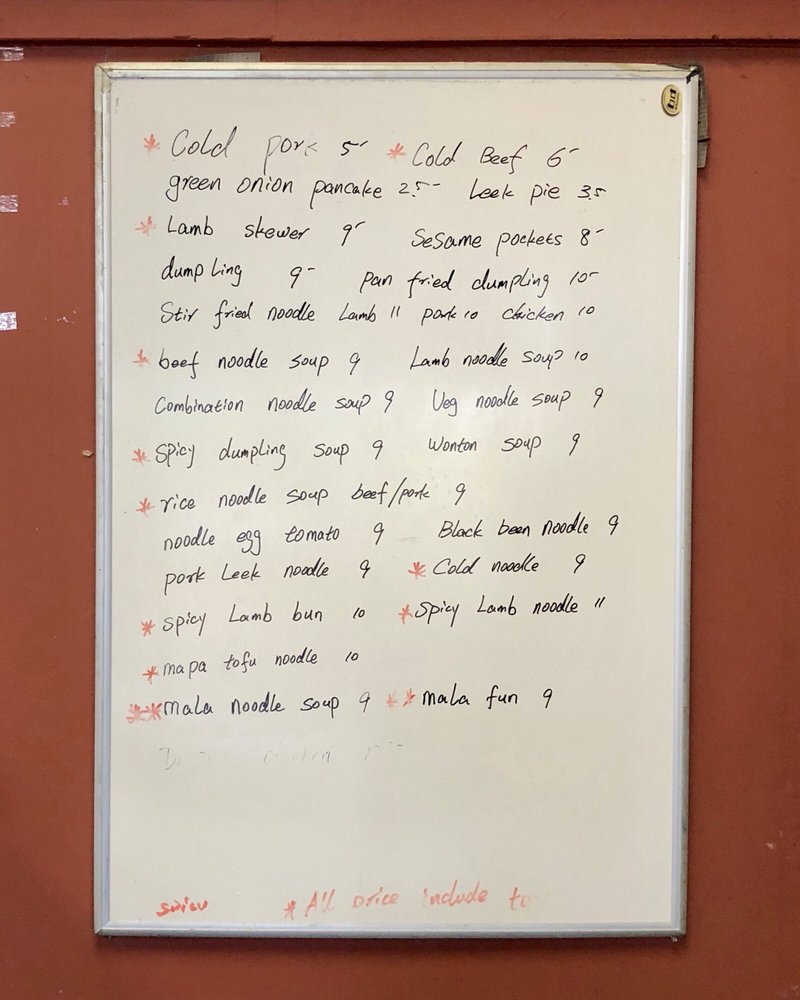 * Cold pork 5- * Cold Beef 6-
green onion pancake 2.5- Leek pie 3.5
* Lamb skewer 9- Sesame pockets 8-
dumpling 9- pan fried dumpling 10-
Stir fried noodle Lamb 11 pork 10 chicken 10
* beef noodle soup 9 Lamb noodle soup 10
Combination noodle soup 9 Veg noodle soup 9
* spicy dumpling soup 9 wonton soup 9
* rice noodle soup beef/pork 9
noodle egg tomato 9 Black been noodle 9
pork Leek noodle 9 * Cold noodle 9
* spicy Lamb bun 10 * spicy Lamb noodle 11
* mapa tofu noodle 10
** mala noodle soup 9 ** mala fun 9
spicy * All price include